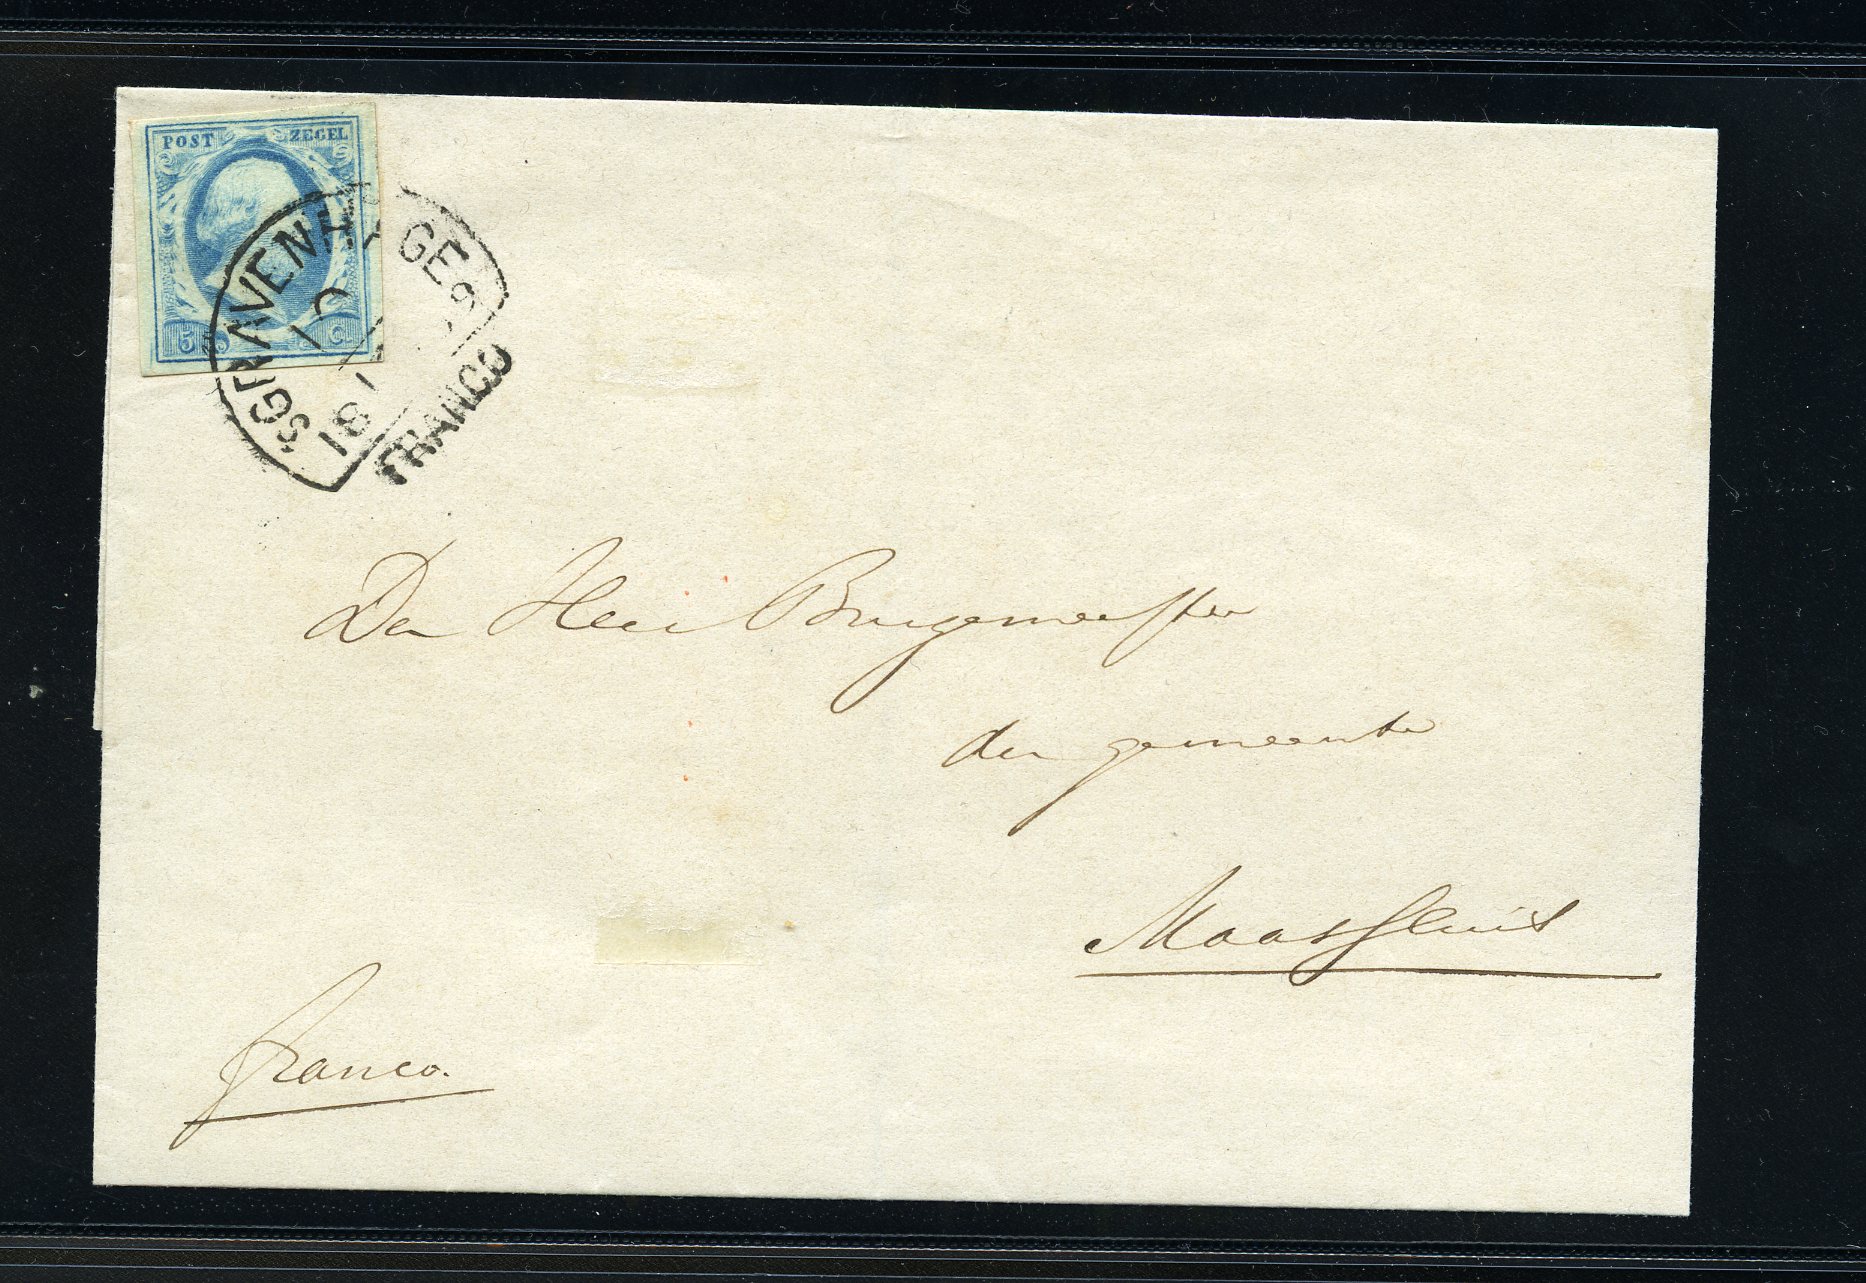 POST ZEGEL
5 C.
'SGRAVENHAGE
18
FRANCO
Den Heer Burgemeester
der gemeente
Maassluis
franco.